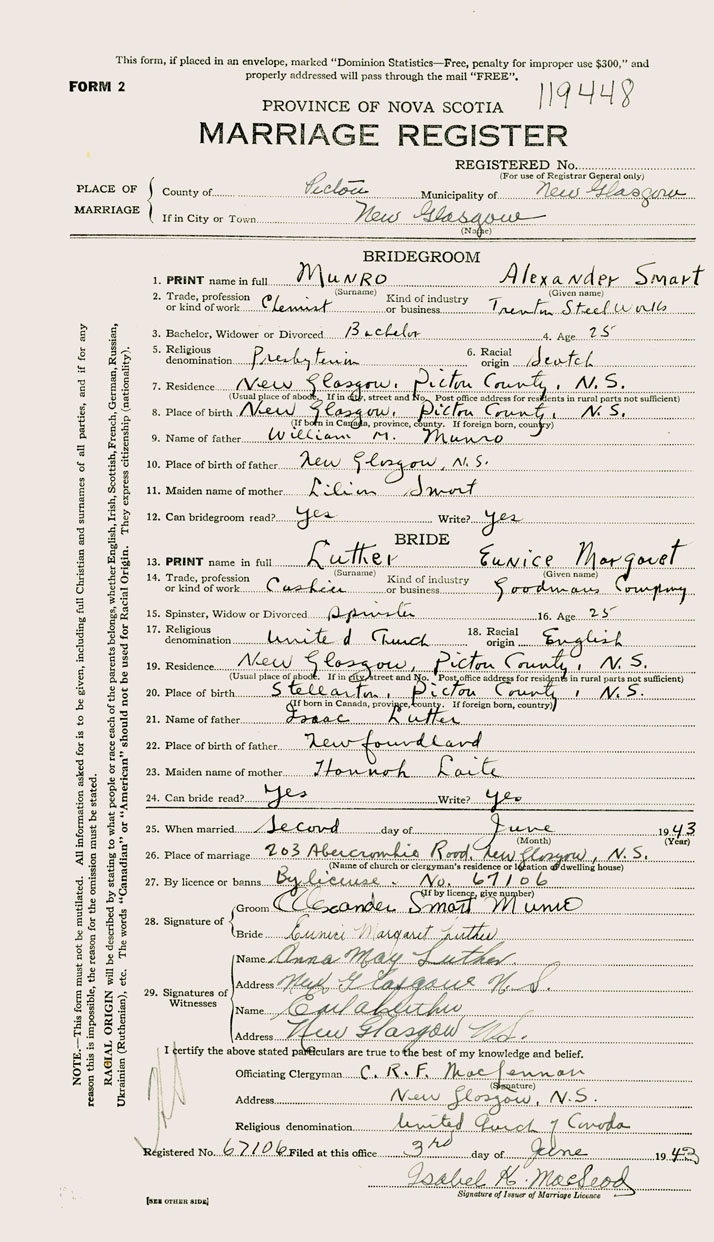 This form, if placed in an envelope, marked "Dominion Statistics—Free, penalty for improper use $300," and
properly addressed will pass through the mail "FREE".
FORM 2
119448
PROVINCE OF NOVA SCOTIA
MARRIAGE REGISTER
REGISTERED No.
(For use of Registrar General only)
PLACE OF MARRIAGE
County of Pictou Municipality of New Glasgow
If in City or Town New Glasgow
(Name)
BRIDEGROOM
1. PRINT name in full MUNRO Alexander Smart
(Surname) (Given name)
2. Trade, profession or kind of work Chemist Kind of industry or business Trenton Steel Works
3. Bachelor, Widower or Divorced Bachelor 4. Age 25
5. Religious denomination Presbyterian 6. Racial origin Scotch
7. Residence New Glasgow, Pictou County, N.S.
(Usual place of abode. If in city, street and No. Post office address for residents in rural parts not sufficient)
8. Place of birth New Glasgow, Pictou County, N.S.
(If born in Canada, province, county. If foreign born, country)
9. Name of father William M. Munro
10. Place of birth of father New Glasgow, N.S.
11. Maiden name of mother Lilian Smart
12. Can bridegroom read? Yes Write? Yes
BRIDE
13. PRINT name in full Luther Eunice Margaret
(Surname) (Given name)
14. Trade, profession or kind of work Cashier Kind of industry or business Goodmans Company
15. Spinster, Widow or Divorced Spinster 16. Age 25
17. Religious denomination United Church 18. Racial origin English
19. Residence New Glasgow, Pictou County, N.S.
(Usual place of abode. If in city, street and No. Post office address for residents in rural parts not sufficient)
20. Place of birth Stellarton, Pictou County, N.S.
(If born in Canada, province, county. If foreign born, country)
21. Name of father Isaac Luther
22. Place of birth of father Newfoundland
23. Maiden name of mother Hannah Laite
24. Can bride read? Yes Write? Yes
25. When married Second day of June 1943
(Month) (Year)
26. Place of marriage 203 Abercrombie Road, New Glasgow, N.S.
(Name of church or clergyman's residence or location of dwelling house)
27. By licence or banns By license. No. 67106
(If by licence, give number)
28. Signature of
Groom Alexander Smart Munro
Bride Eunice Margaret Luther
29. Signatures of Witnesses
Name Anna May Luther
Address New Glasgow N.S.
Name
Address New Glasgow N.S.
I certify the above stated particulars are true to the best of my knowledge and belief.
Officiating Clergyman C. R. F. MacLennan
(Signature)
Address New Glasgow, N.S.
Religious denomination United Church of Canada
Registered No. 67106 Filed at this office 3rd day of June 1943
Isabel H. MacLeod
Signature of Issuer of Marriage Licence
[SEE OTHER SIDE]
NOTE.—This form must not be mutilated. All information asked for is to be given, including full Christian and surnames of all parties, and if for any
reason this is impossible, the reason for the omission must be stated.
RACIAL ORIGIN will be described by stating to what people or race each of the parents belongs, whether English, Irish, Scottish, French, German, Russian,
Ukrainian (Ruthenian), etc. The words "Canadian" or "American" should not be used for Racial Origin. They express citizenship (nationality).